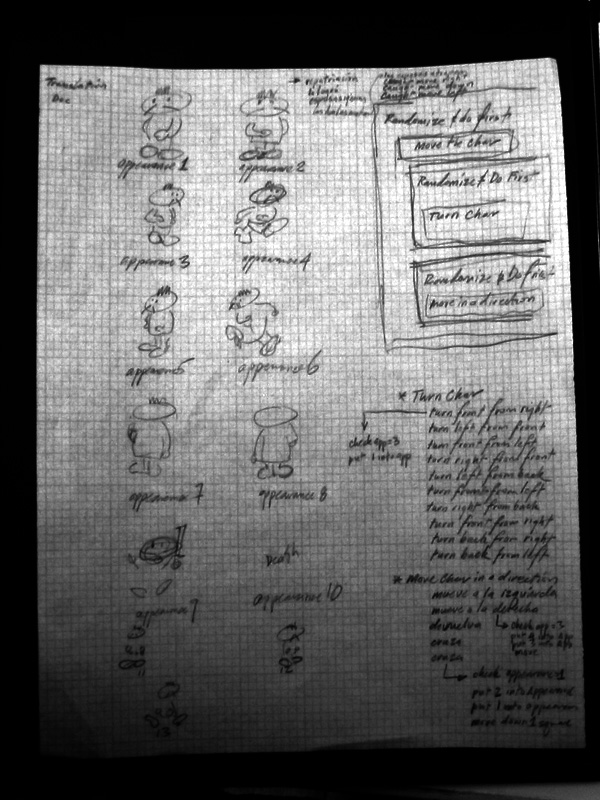 Translation
Doc
appearance 1
appearance 2
appearance 3
appearance 4
appearance 5
appearance 6
appearance 7
appearance 8
Death
appearance 10
11
12
13
cause + move right
cause + move down
cause + move left
Randomize & do first
move the char
Randomize & Do First
Turn Char
Randomize & Do First
move in a direction
* Turn Char
turn front from right
turn left from front
turn front from left
turn right from front
turn left from back
turn from left
turn right from back
turn front from right
turn back from right
turn back from left
check app=3
put 1 into app
* Move Char in a direction
mueve a la izquierda
mueve a la derecha
devuelva
check app=3
put 3 into app
move
check appearance=1
put 2 into appearance
put 1 into appearance
move down 1 square